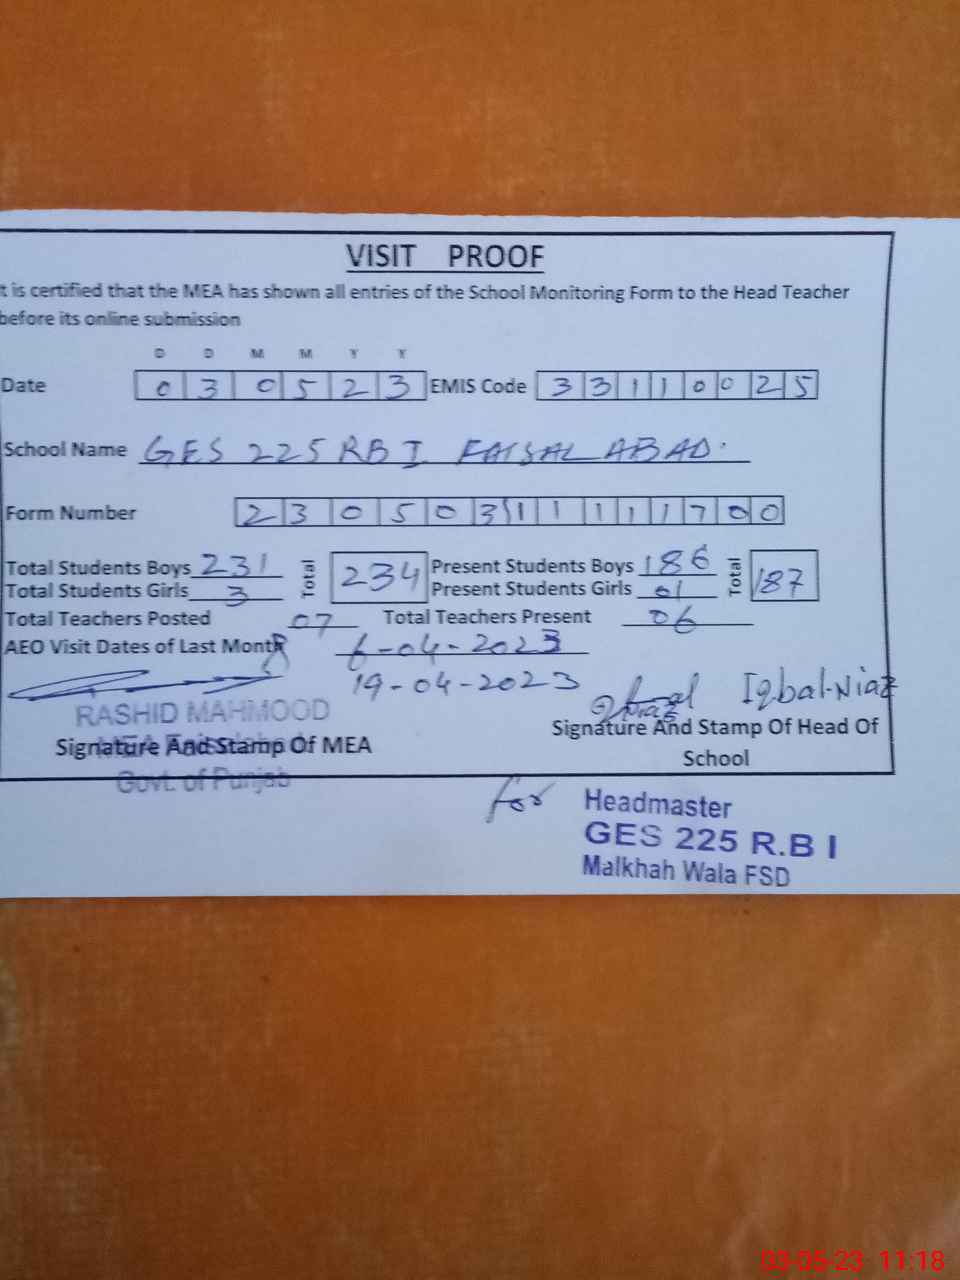 VISIT PROOF
t is certified that the MEA has shown all entries of the School Monitoring Form to the Head Teacher
before its online submission
D D M M Y Y
Date 0 3 0 5 2 3 EMIS Code 3 3 1 1 0 0 2 5
School Name GES 225 RB I FAISALABAD.
Form Number 2 3 0 5 0 3 1 1 1 1 1 7 0 0
Total Students Boys 231 Total 234 Present Students Boys 186 Total 187
Total Students Girls 3 Present Students Girls 01
Total Teachers Posted 07 Total Teachers Present 06
AEO Visit Dates of Last Month 6-04-2023
19-04-2023
Iqbal Niaz
RASHID MAHMOOD
Signature And Stamp Of MEA
Govt. of Punjab
Signature And Stamp Of Head Of
School
for Headmaster
GES 225 R.B I
Malkhah Wala FSD
03-05-23 11:18